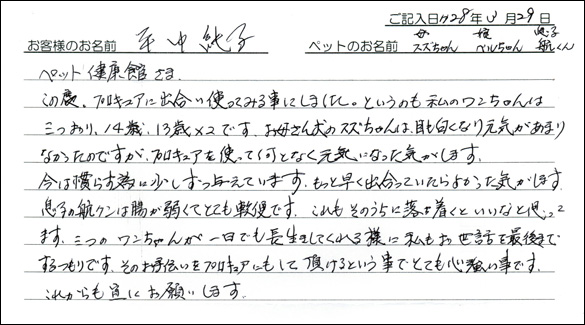 ご記入日 H28年 3月29日
お客様のお名前 平中純子 ペットのお名前 母 スズちゃん 娘 ベルちゃん 息子 航くん
ペット健康館さま
この度、プロキュアに出合い使ってみる事にしました。というのも私のワンちゃんは
三つおり、14歳、13歳×2です。お母さん犬のスズちゃんは、目も白くなり元気があまり
なかったのですが、プロキュアを使って何となく元気になった気がします。
今は慣らす為に少しずつ与えています。もっと早く出合っていたらよかった気がします
息子の航クンは腸が弱くてとても軟便です。これもそのうちに落ち着くといいなと思ってい
ます。三つのワンちゃんが一日でも長生きしてくれる様に私もお世話を最後まで
するつもりです。そのお手伝いをプロキュアにもして頂けるという事でとても心強い事です。
これからも宜しくお願いします。